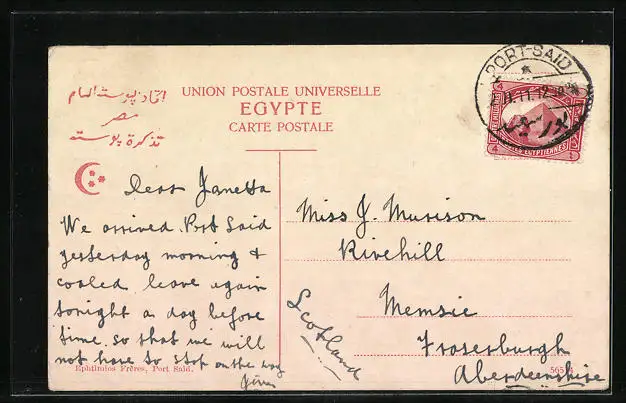 اتحاد پوسته العام
مصر
تذكرة پوسته
UNION POSTALE UNIVERSELLE
EGYPTE
CARTE POSTALE
PORT-SAID
11.11.12
4 4
POSTES EGYPTIENNES
Dear Janetta
We arrived Port Said
yesterday morning &
coaled leave again
tonight a day before
time. so that we will
not have to stop on the way
Miss J. Murison
Rivehill
Memsie
Fraserburgh
Aberdeenshire
Scotland
Ephtimios Frères, Port Said.